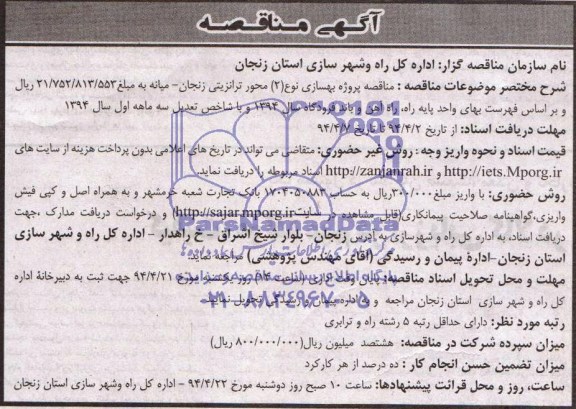 آگهی مناقصه
نام سازمان مناقصه گزار: اداره کل راه وشهر سازی استان زنجان
شرح مختصر موضوعات مناقصه : مناقصه پروژه بهسازی نوع(۲) محور ترانزیتی زنجان- میانه به مبلغ۳۱/۷۵۲/۸۱۳/۵۵۳ ریال
و بر اساس فهرست بهای واحد پایه راه، راه آهن و باند فرودگاه سال ۱۳۹۴ و با شاخص تعدیل سه ماهه اول سال ۱۳۹۴
مهلت دریافت اسناد: از تاریخ ۹۴/۴/۲ تا تاریخ ۹۴/۴/۷
قیمت اسناد و نحوه واریز وجه : روش غیر حضوری: متقاضی می تواند در تاریخ های اعلامی بدون پرداخت هزینه از سایت های
http://iets.Mporg.ir و http://zanjanrah.ir اسناد مربوطه را دریافت نماید.
روش حضوری: با واریز مبلغ۳۰۰/۰۰۰ریال به حساب ۱۷۰۴۰۵۰۸۸۳ بانک تجارت شعبه خرمشهر و به همراه اصل و کپی فیش
واریزی،گواهینامه صلاحیت پیمانکاری(قابل مشاهده در سایت http://sajar.mporg.ir) و درخواست دریافت مدارک ،جهت
دریافت اسناد، به اداره کل راه و شهرسازی به آدرس زنجان- بلوار شیخ اشراق - خ راهدار - اداره کل راه و شهر سازی
استان زنجان-ادارۀ پیمان و رسیدگی (آقای مهندس پژوهشی) مراجعه نمایند
مهلت و محل تحویل اسناد مناقصه: پایان وقت اداری (ساعت ۱۴) روز یکشنبه مورخ ۹۴/۴/۲۱ جهت ثبت به دبیرخانۀ اداره
کل راه و شهر سازی استان زنجان مراجعه و به اداره پیمان و رسیدگی تحویل نمایند
رتبه مورد نظر: دارای حداقل رتبه ۵ رشته راه و ترابری
میزان سپرده شرکت در مناقصه: هشتصد میلیون ریال(۸۰۰/۰۰۰/۰۰۰ ریال)
میزان تضمین حسن انجام کار : ده درصد از هر کارکرد
ساعت، روز و محل قرائت پیشنهادها: ساعت ۱۰ صبح روز دوشنبه مورخ ۹۴/۴/۲۲ - اداره کل راه وشهر سازی استان زنجان
ParsNamadData
۰۲۱-۸۸۳۴۹۶۷۰-۵